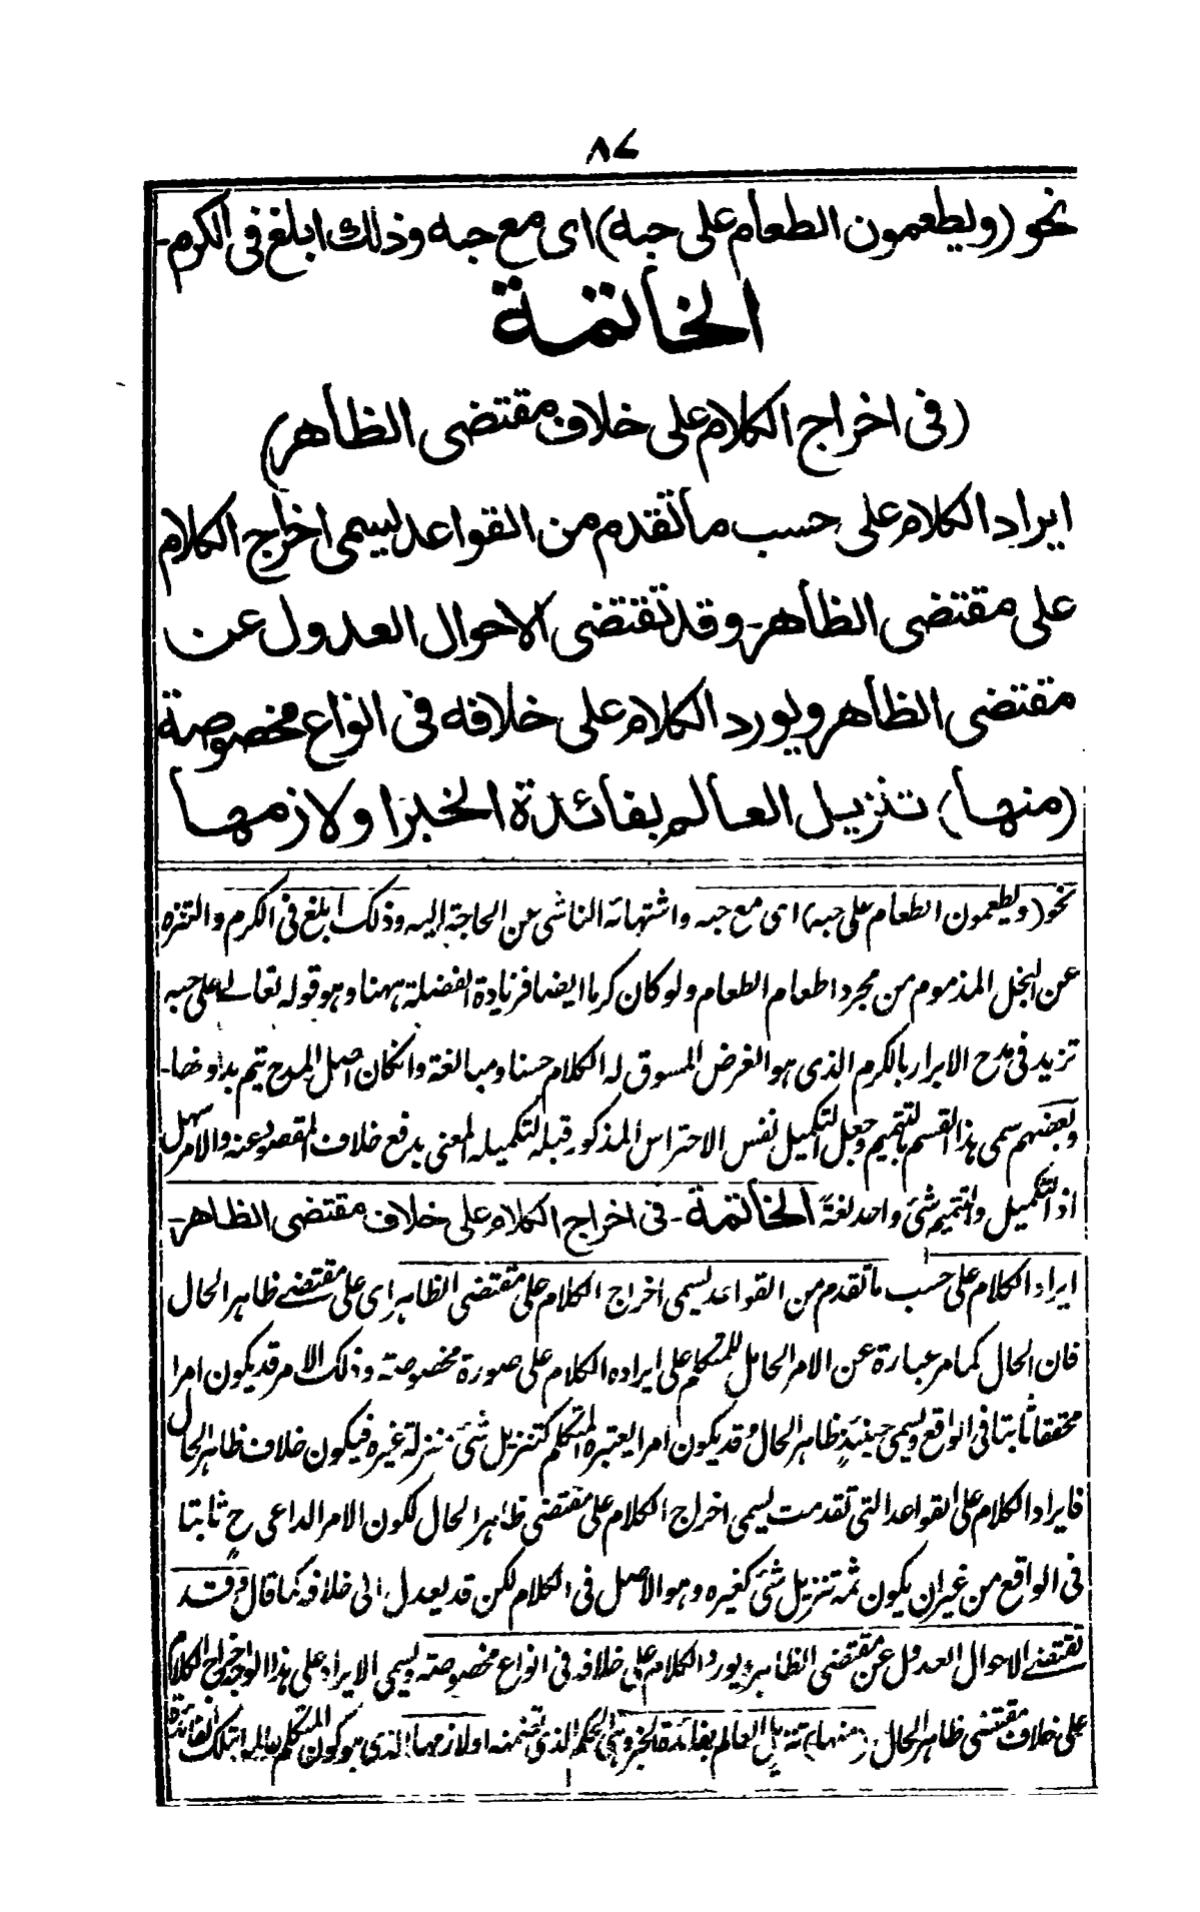 ٨٧
نحو (ويطعمون الطعام على حبه) اى مع حبه وذلك ابلغ فى الكرم-
الخاتمة
(فى اخراج الكلام على خلاف مقتضى الظاهر)
ايراد الكلام على حسب ما تقدم من القواعد يسمى اخراج الكلام
على مقتضى الظاهر- وقد تقتضى الاحوال العدول عن
مقتضى الظاهر ويورد الكلام على خلافه فى انواع مخصوصة
(منها) تنزيل العالم بفائدة الخبر او لازمها
نحو (ويطعمون الطعام على حبه) اى مع حبه واشتهائه الناشى عن الحاجة اليه وذلك ابلغ فى الكرم والتنزه
عن البخل المذموم من مجرد اطعام الطعام ولو كان كرما ايضا فزيادة الفضلة ههنا وهو قوله تعالى على حبه
تزيد فى مدح الابرار بالكرم الذى هو الغرض المسوق له الكلام حسنا ومبالغة وانكان اصل المدح يتم بدونها-
وبعضهم سمى هذا القسم بالتتميم وجعل التكميل نفس الاحتراس المذكور قبله لتكميله المعنى بدفع خلاف المقصود عنه والامر سهل
اذ التكميل والتتميم شئ واحد لغة الخاتمة- فى اخراج الكلام على خلاف مقتضى الظاهر-
ايراد الكلام على حسب ما تقدم من القواعد يسمى اخراج الكلام على مقتضى الظاهر اى على مقتضى ظاهر الحال
فان الحال كما مر عبارة عن الامر الحامل للمتكلم على ايراده الكلام على صورة مخصوصة وذلك الامر قد يكون امرا
محققا ثابتا فى الواقع ويسمى حينئذ ظاهر الحال وقد يكون امرا يعتبره المتكلم كتنزيل شئ منزلة غيره فيكون خلاف ظاهر الحال
فايراد الكلام على القواعد التى تقدمت يسمى اخراج الكلام على مقتضى ظاهر الحال لكون الامر الداعى ح ثابتا
فى الواقع من غير ان يكون ثمه تنزيل شئ كغيره وهو الاصل فى الكلام لكن قد يعدل الى خلافه كما قال وقد
تقتضى الاحوال العدول عن مقتضى الظاهر ويورد الكلام على خلافه فى انواع مخصوصة ويسمى الايراد على هذا الوجه اخراج الكلام
على خلاف مقتضى ظاهر الحال (منها) تنزيل العالم بفائدة الخبر وهى الحكم الذى تضمنه او لازمها الذى هو كون المتكلم عالما بتلك الفائدة